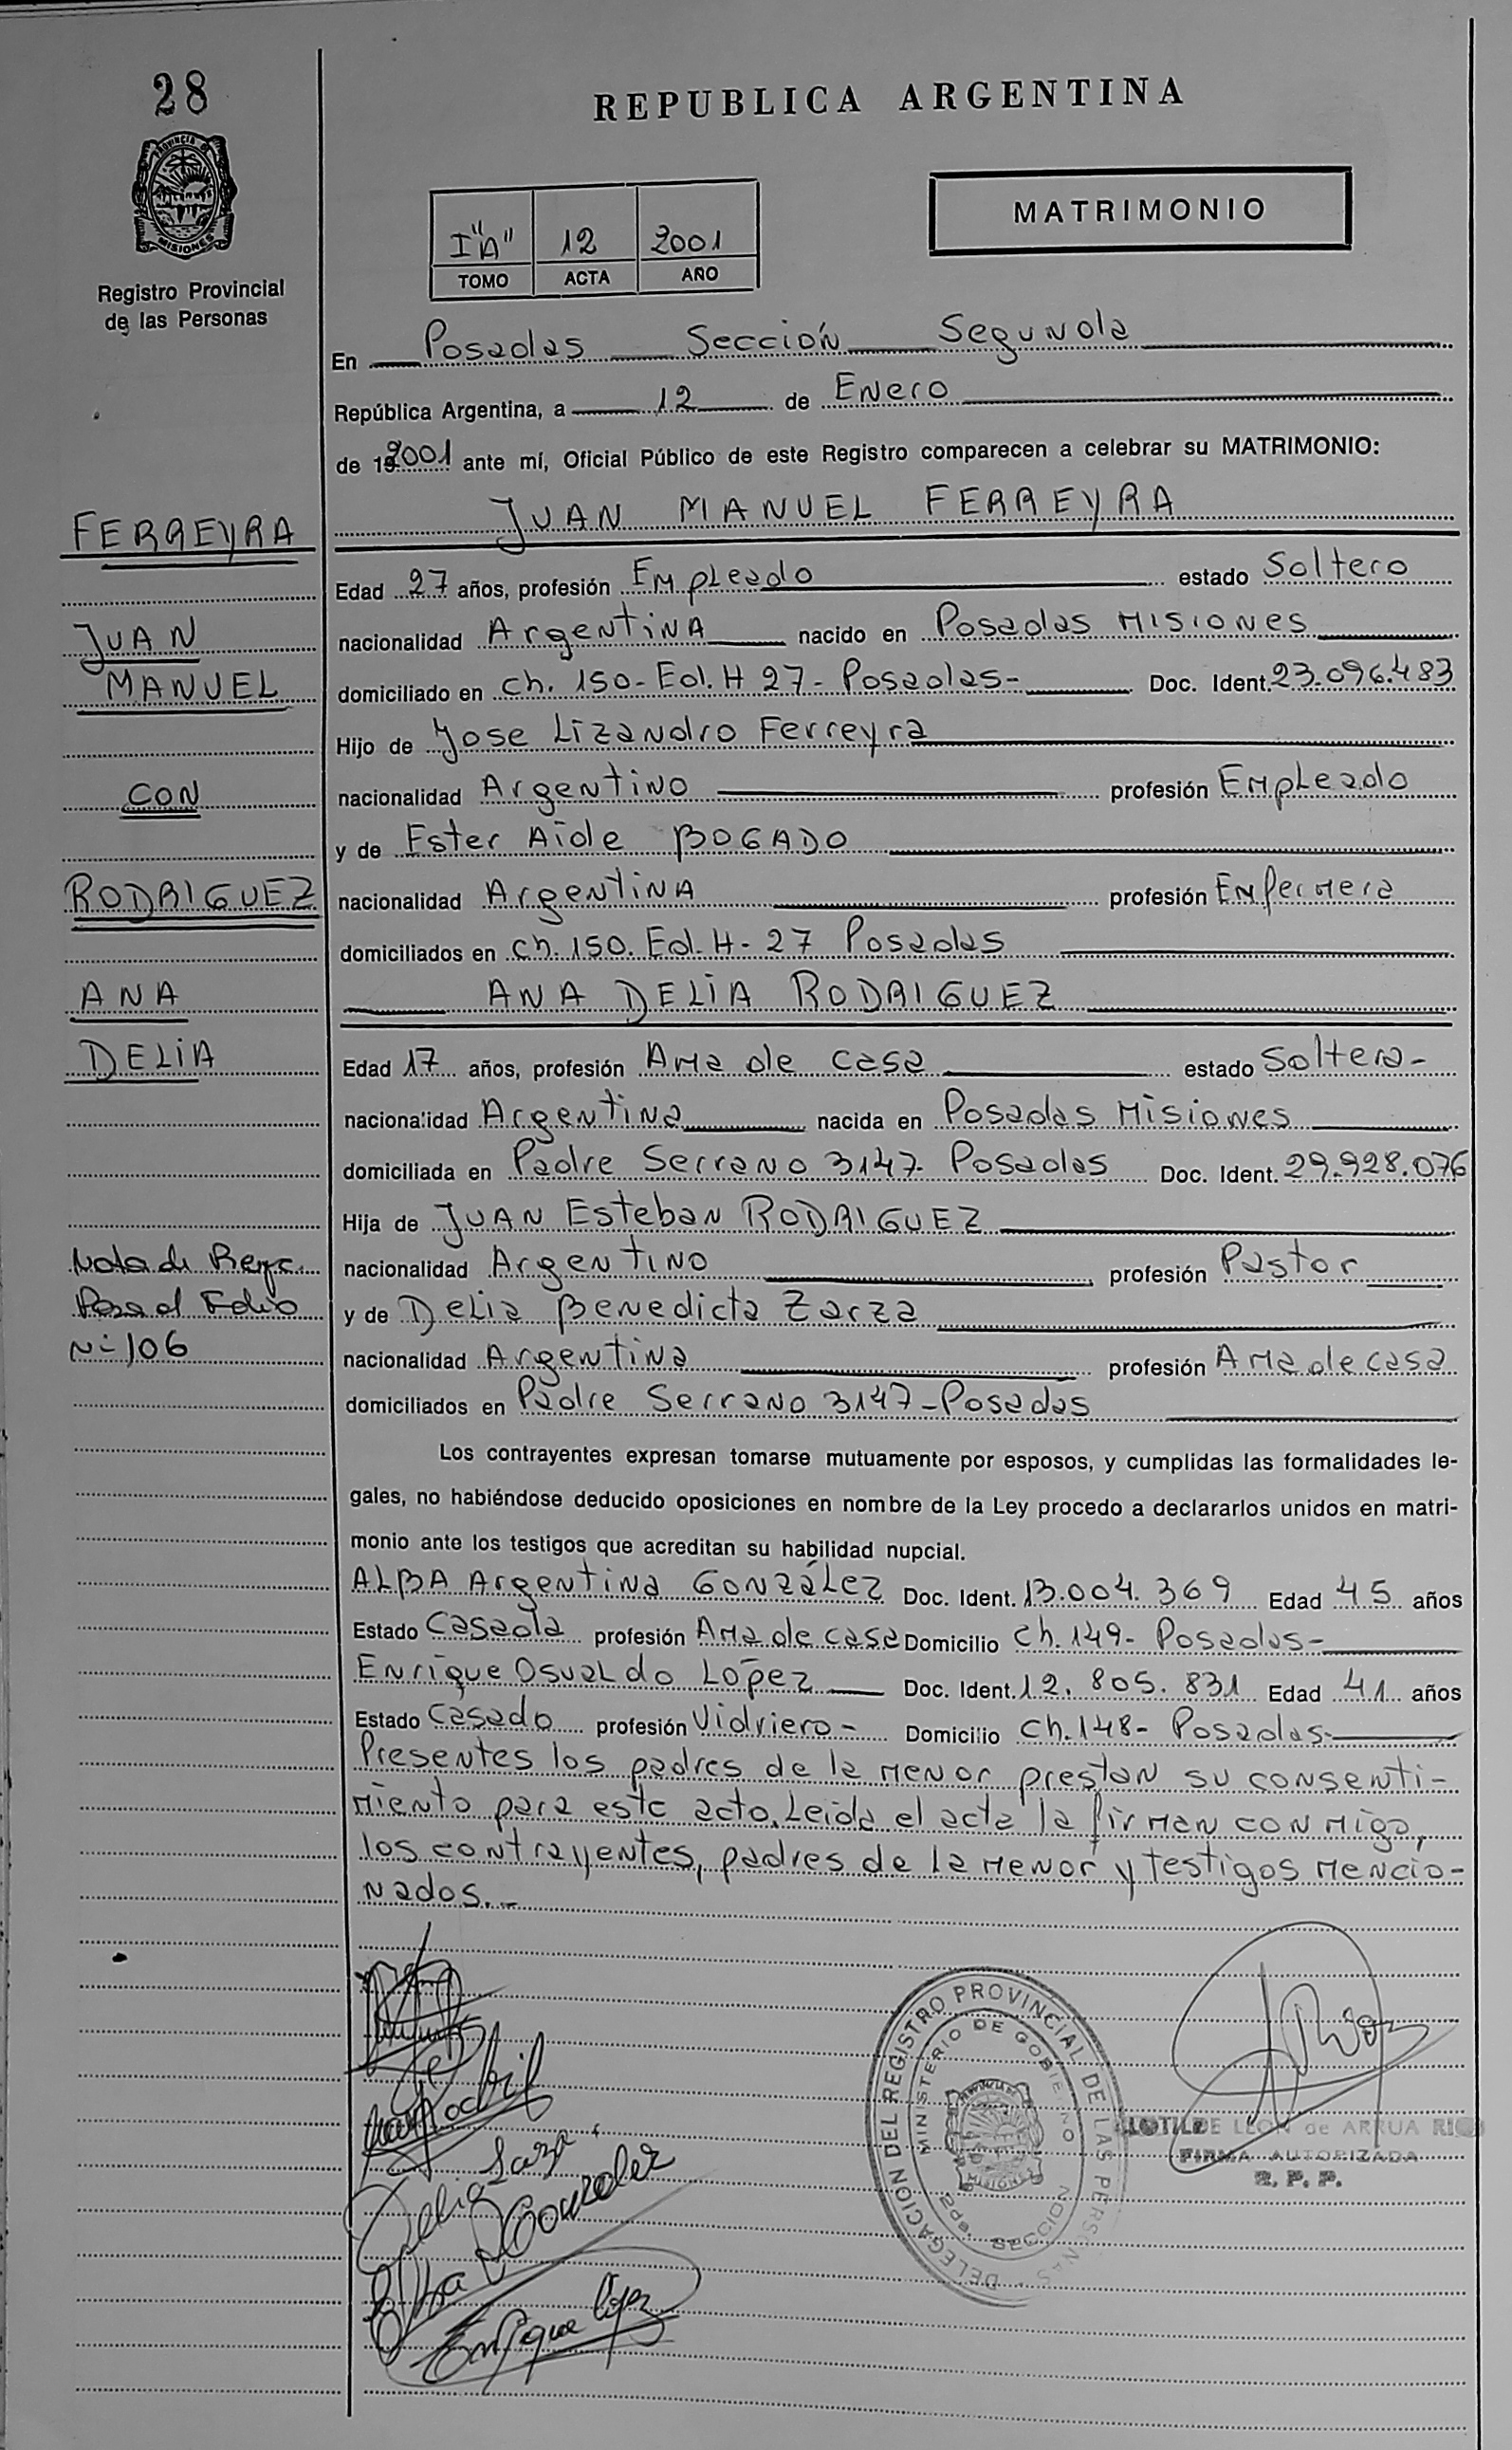 28
REPUBLICA ARGENTINA
PROVINCIA DE
MISIONES
MATRIMONIO
I"A" 12 2001
TOMO ACTA AÑO
Registro Provincial
de las Personas
En Posadas Sección Segunda
República Argentina, a 12 de Enero
de 2001 ante mí, Oficial Público de este Registro comparecen a celebrar su MATRIMONIO:
JUAN MANUEL FERREYRA
FERREYRA
Edad 27 años, profesión Empleado estado Soltero
JUAN
nacionalidad Argentina nacido en Posadas Misiones
MANUEL
domiciliado en ch. 150-Ed. H 27- Posadas- Doc. Ident. 23.096.483
Hijo de Jose Lizandro Ferreyra
CON
nacionalidad Argentino profesión Empleado
y de Ester Aide BOGADO
RODRIGUEZ
nacionalidad Argentina profesión Enfermera
domiciliados en ch. 150. Ed. H-27 Posadas
ANA
ANA DELIA RODRIGUEZ
DELIA
Edad 17 años, profesión Ama de casa estado Soltera-
nacionalidad Argentina nacida en Posadas Misiones
domiciliada en Padre Serrano 3147- Posadas Doc. Ident. 29.928.076
Hija de JUAN Esteban RODRIGUEZ
Nota de
nacionalidad Argentino profesión Pastor
Pasa al Folio
y de Delia Benedicta Zarza
Nº 106
nacionalidad Argentina profesión Ama de casa
domiciliados en Padre Serrano 3147-Posadas
Los contrayentes expresan tomarse mutuamente por esposos, y cumplidas las formalidades le-
gales, no habiéndose deducido oposiciones en nombre de la Ley procedo a declararlos unidos en matri-
monio ante los testigos que acreditan su habilidad nupcial.
ALBA Argentina GONZÁLEZ Doc. Ident. 13.004.369 Edad 45 años
Estado Casada profesión Ama de casa Domicilio ch. 149- Posadas-
Enrique Osvaldo López Doc. Ident. 12.805.831 Edad 41 años
Estado Casado profesión Vidriero- Domicilio ch. 148- Posadas-
Presentes los padres de la menor prestan su consenti-
miento para este acto. Leida el acta la firman conmigo,
los contrayentes, padres de la menor y testigos mencio-
nados.-
Delia Zarza
Alba González
Enrique López
DELEGACION DEL REGISTRO PROVINCIAL DE LAS PERSONAS
MINISTERIO DE GOBIERNO
2da. SECCION
PROVINCIA DE
MISIONES
CLOTILDE LEON de ARRUA RIOS
FIRMA AUTORIZADA
R. P. P.